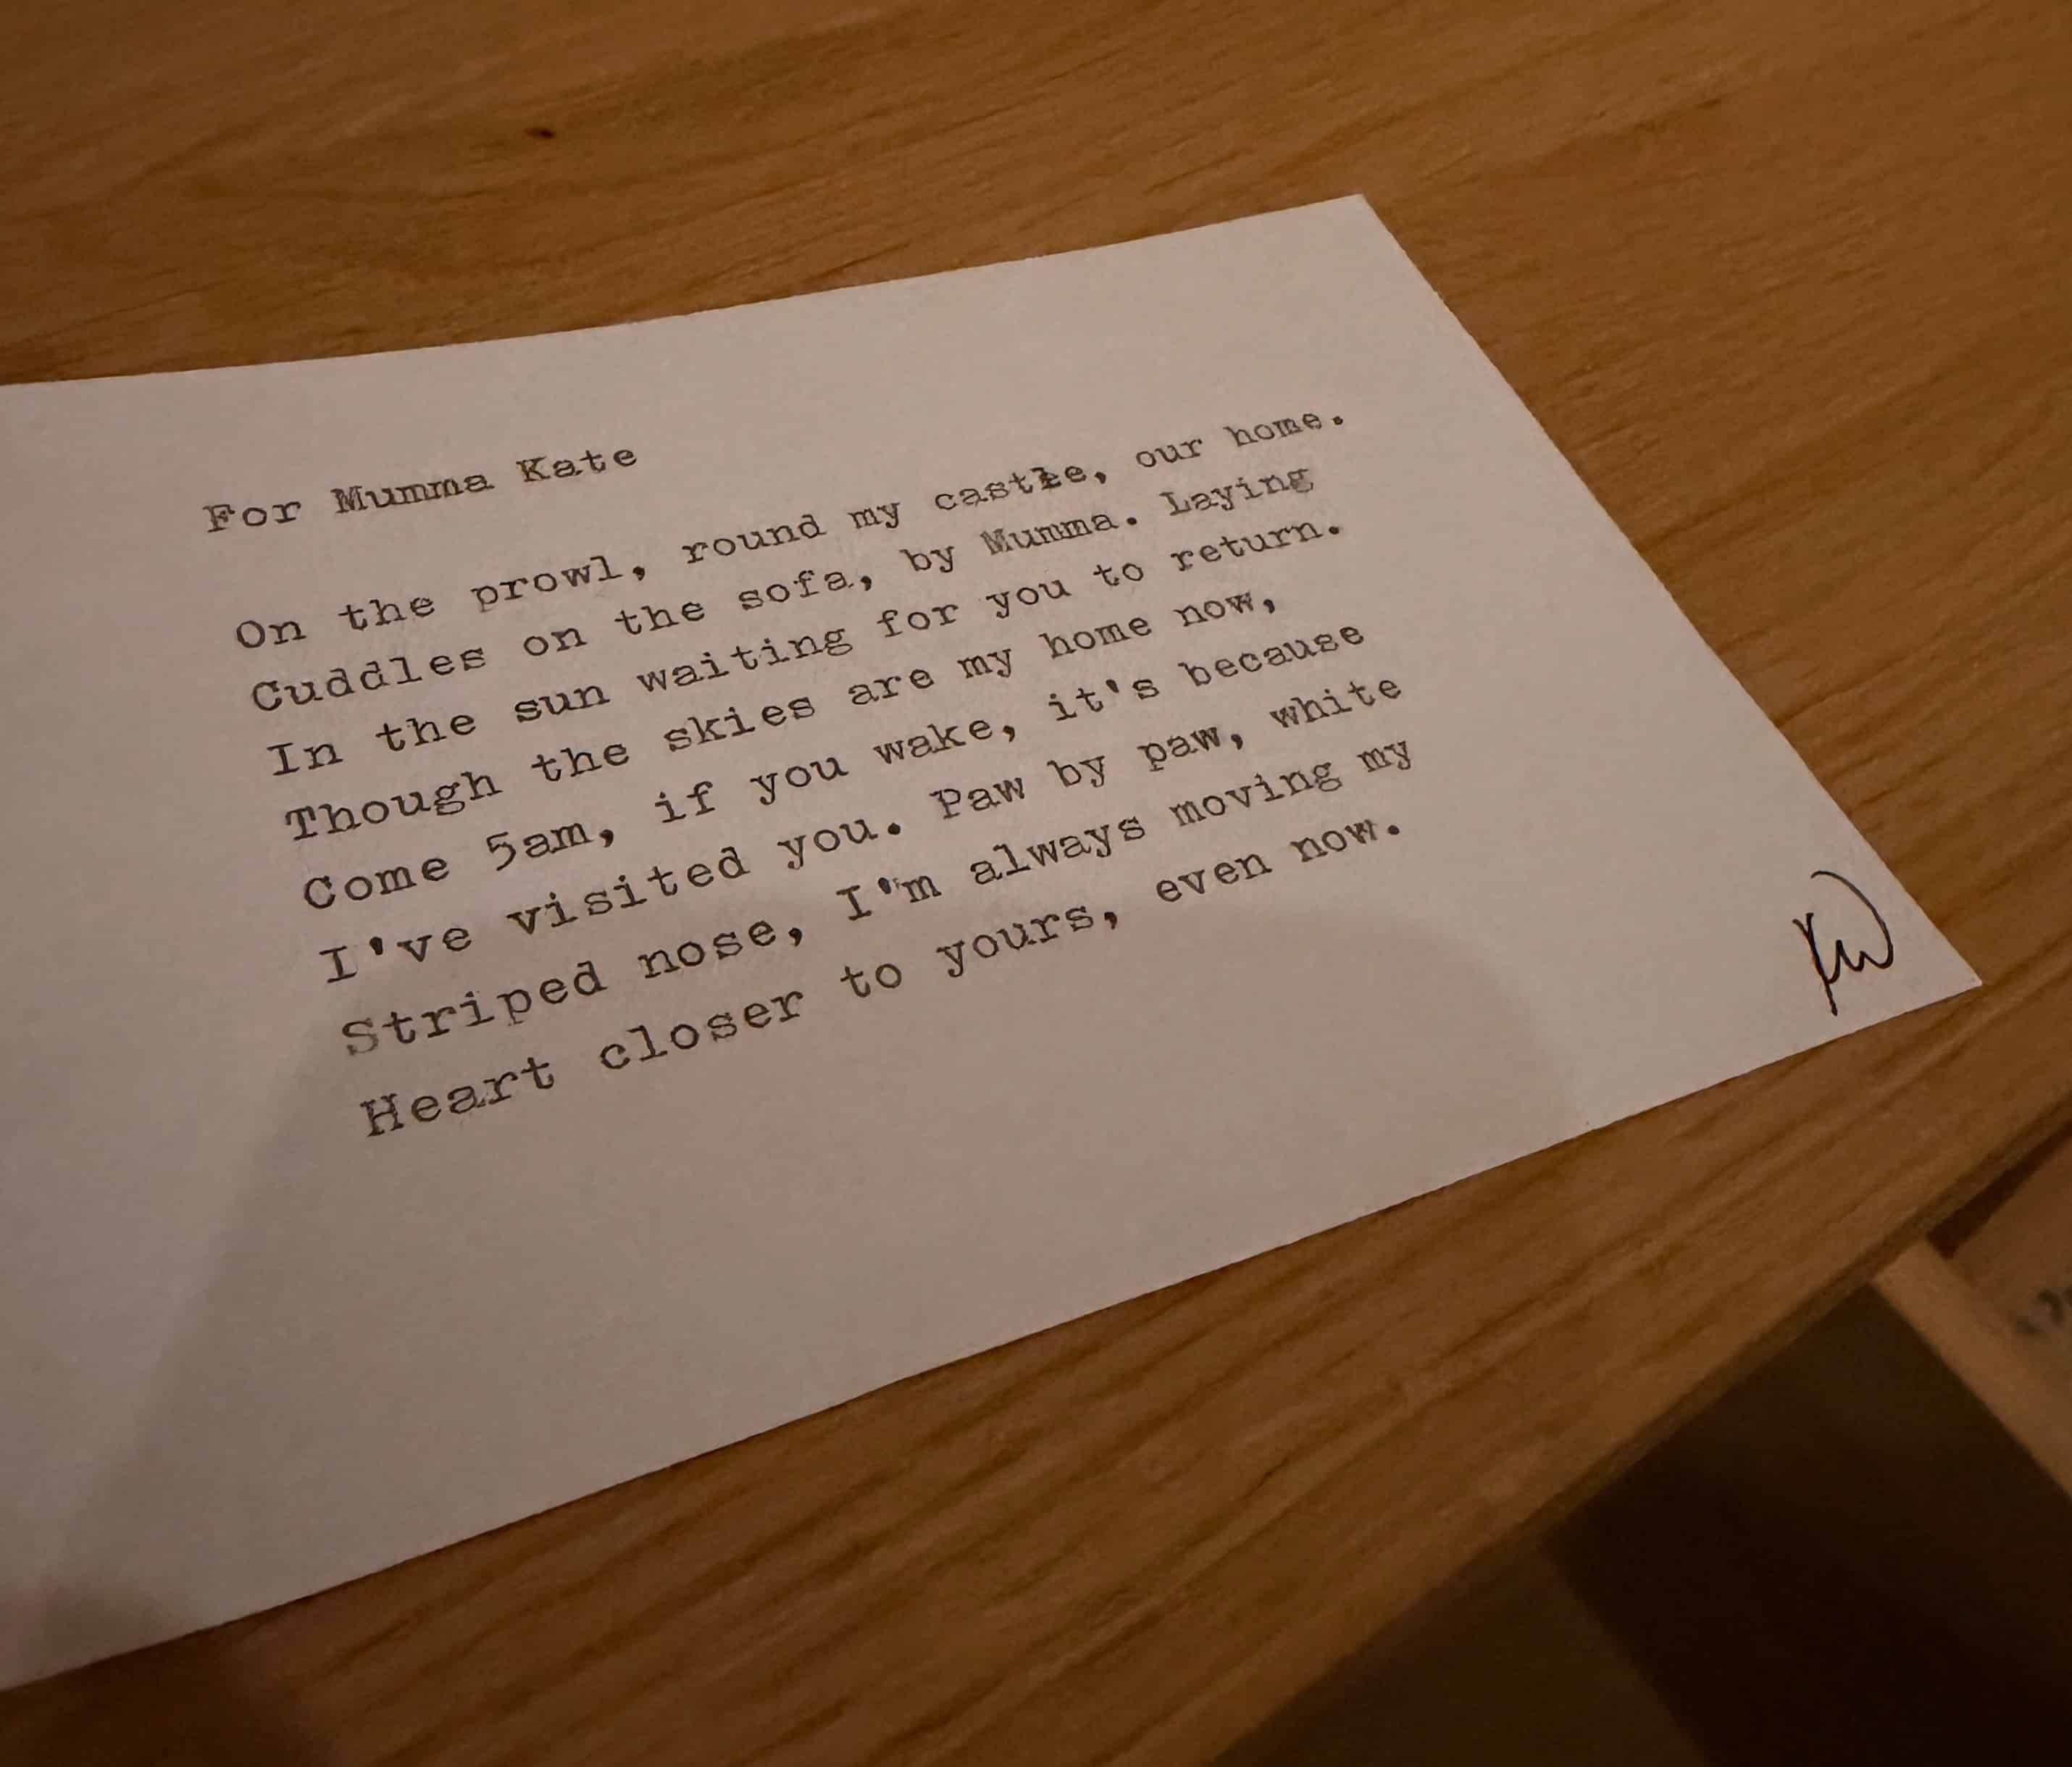 For Mumma Kate
On the prowl, round my castle, our home.
Cuddles on the sofa, by Mumma. Laying
In the sun waiting for you to return.
Though the skies are my home now,
Come 5am, if you wake, it's because
I've visited you. Paw by paw, white
Striped nose, I'm always moving my
Heart closer to yours, even now.